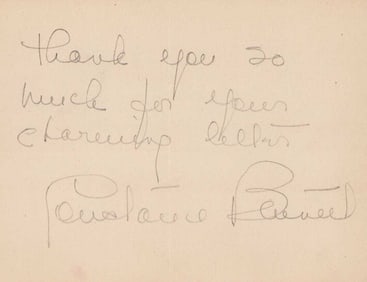 Thank you so
much for your
charming letter
Constance Bennett